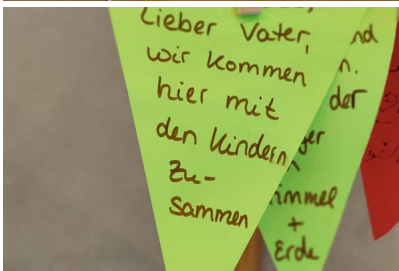 Lieber Vater,
wir kommen
hier mit
den Kindern
Zu-
sammen
nd
n.
der
er
immel
+
Erde